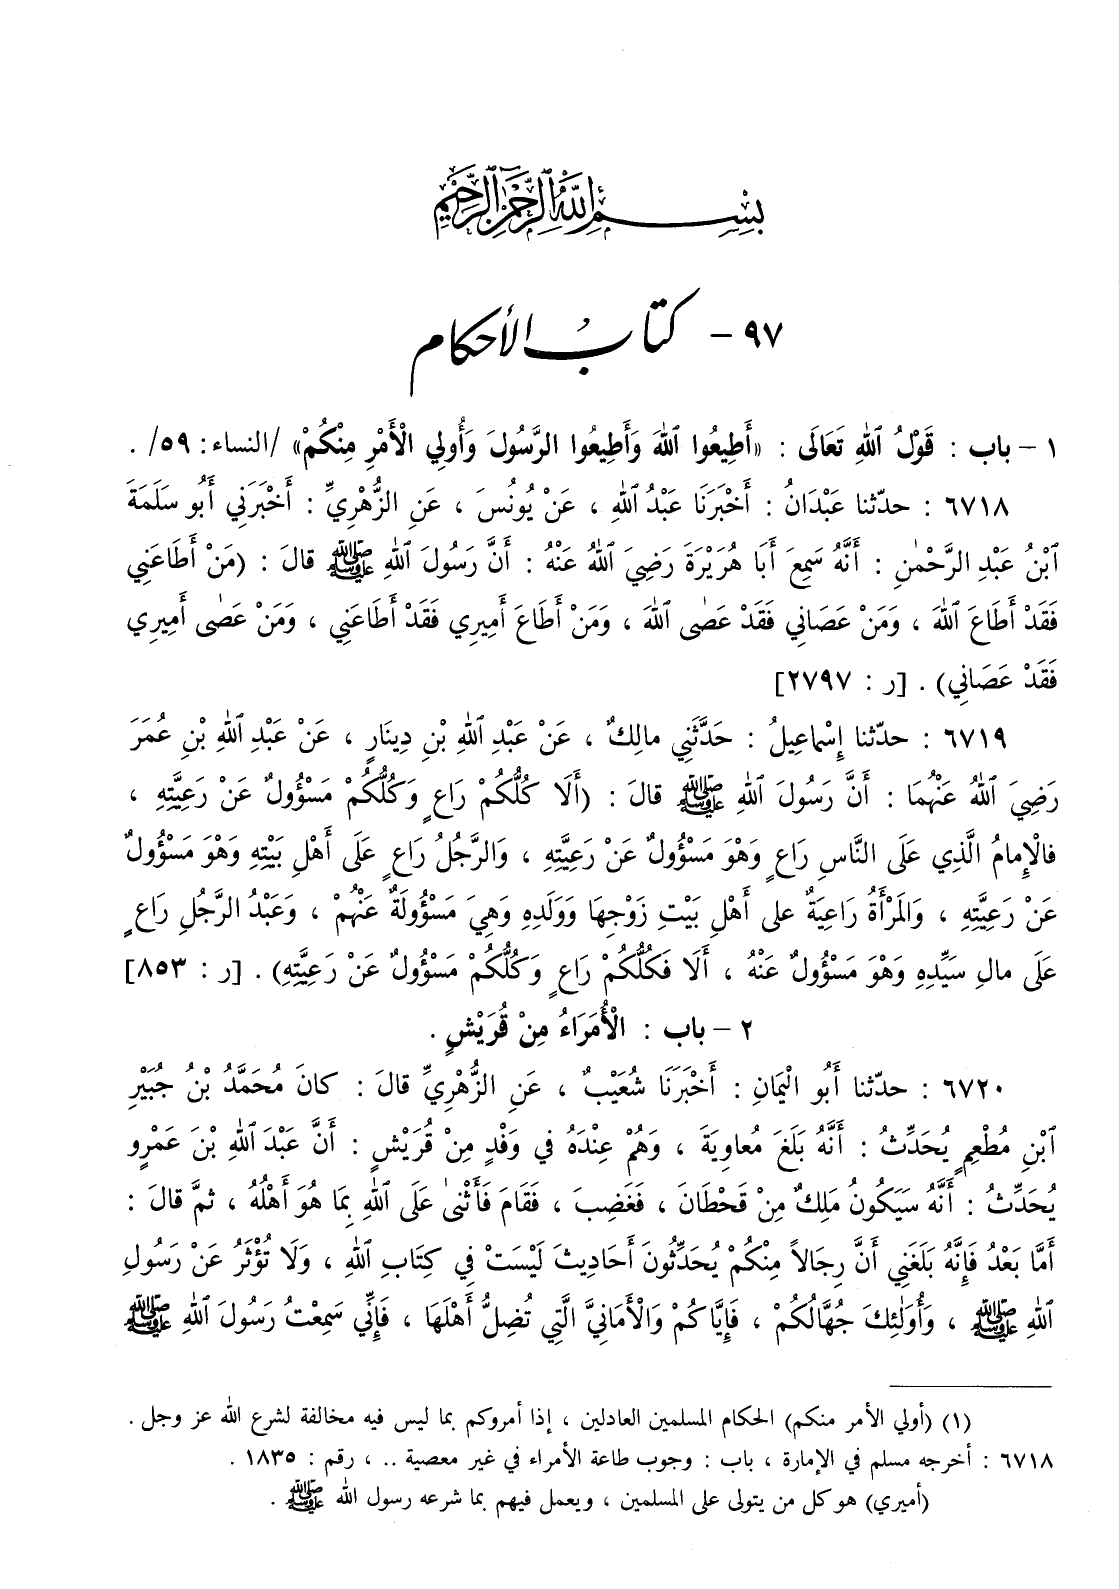 بِسْمِ اللهِ الرَّحْمٰنِ الرَّحِيمِ
٩٧ - كتابُ الأحكام
١ – باب : قَوْلُ ٱللهِ تَعَالَى : «أَطِيعُوا ٱللهَ وَأَطِيعُوا الرَّسُولَ وَأُولِي الْأَمْرِ مِنْكُمْ» /النساء: ٥٩/ .
٦٧١٨ : حدّثنا عَبْدَانُ : أَخْبَرَنَا عَبْدُ ٱللهِ ، عَنْ يُونُسَ ، عَنِ الزُّهْرِيِّ : أَخْبَرَنِي أَبُو سَلَمَةَ
ٱبْنُ عَبْدِ الرَّحْمٰنِ : أَنَّهُ سَمِعَ أَبَا هُرَيْرَةَ رَضِيَ ٱللهُ عَنْهُ : أَنَّ رَسُولَ ٱللهِ ﷺ قالَ : (مَنْ أَطَاعَنِي
فَقَدْ أَطَاعَ ٱللهَ ، وَمَنْ عَصَانِي فَقَدْ عَصٰى ٱللهَ ، وَمَنْ أَطَاعَ أَمِيرِي فَقَدْ أَطَاعَنِي ، وَمَنْ عَصٰى أَمِيرِي
فَقَدْ عَصَانِي) . [ر : ٢٧٩٧]
٦٧١٩ : حدّثنا إِسْماعِيلُ : حَدَّثَنِي مالِكٌ ، عَنْ عَبْدِ ٱللهِ بْنِ دِينَارٍ ، عَنْ عَبْدِ ٱللهِ بْنِ عُمَرَ
رَضِيَ ٱللهُ عَنْهُمَا : أَنَّ رَسُولَ ٱللهِ ﷺ قالَ : (أَلَا كُلُّكُمْ رَاعٍ وَكُلُّكُمْ مَسْؤُولٌ عَنْ رَعِيَّتِهِ ،
فالْإِمامُ الَّذِي عَلَى النَّاسِ رَاعٍ وَهْوَ مَسْؤُولٌ عَنْ رَعِيَّتِهِ ، وَالرَّجُلُ رَاعٍ عَلَى أَهْلِ بَيْتِهِ وَهْوَ مَسْؤُولٌ
عَنْ رَعِيَّتِهِ ، وَالمَرْأَةُ رَاعِيَةٌ على أَهْلِ بَيْتِ زَوْجِهَا وَوَلَدِهِ وَهِيَ مَسْؤُولَةٌ عَنْهُمْ ، وَعَبْدُ الرَّجُلِ رَاعٍ
عَلَى مالِ سَيِّدِهِ وَهْوَ مَسْؤُولٌ عَنْهُ ، أَلَا فَكُلُّكُمْ رَاعٍ وَكُلُّكُمْ مَسْؤُولٌ عَنْ رَعِيَّتِهِ) . [ر : ٨٥٣]
٢ – باب : الْأُمَرَاءُ مِنْ قُرَيْشٍ .
٦٧٢٠ : حدّثنا أَبُو الْيَمَانِ : أَخْبَرَنَا شُعَيْبٌ ، عَنِ الزُّهْرِيِّ قالَ : كانَ مُحَمَّدُ بْنُ جُبَيْرِ
ٱبْنِ مُطْعِمٍ يُحَدِّثُ : أَنَّهُ بَلَغَ مُعاوِيَةَ ، وَهُمْ عِنْدَهُ في وَفْدٍ مِنْ قُرَيْشٍ : أَنَّ عَبْدَ ٱللهِ بْنَ عَمْرٍو
يُحَدِّثُ : أَنَّهُ سَيَكُونُ مَلِكٌ مِنْ قَحْطَانَ ، فَغَضِبَ ، فَقَامَ فَأَثْنٰى عَلَى ٱللهِ بِمَا هُوَ أَهْلُهُ ، ثمَّ قالَ :
أَمَّا بَعْدُ فَإِنَّهُ بَلَغَنِي أَنَّ رِجَالاً مِنْكُمْ يُحَدِّثُونَ أَحَادِيثَ لَيْسَتْ فِي كِتَابِ ٱللهِ ، وَلَا تُؤْثَرُ عَنْ رَسُولِ
ٱللهِ ﷺ ، وَأُولٰئِكَ جُهَّالُكُمْ ، فَإِيَّاكُمْ وَالْأَمانِيَّ الَّتِي تُضِلُّ أَهْلَهَا ، فَإِنِّي سَمِعْتُ رَسُولَ ٱللهِ ﷺ
(١) (أولي الأمر منكم) الحكام المسلمين العادلين ، إذا أمروكم بما ليس فيه مخالفة لشرع الله عز وجل .
٦٧١٨ : أخرجه مسلم في الإمارة ، باب : وجوب طاعة الأمراء في غير معصية .. ، رقم : ١٨٣٥ .
(أميري) هو كل من يتولى على المسلمين ، ويعمل فيهم بما شرعه رسول الله ﷺ .